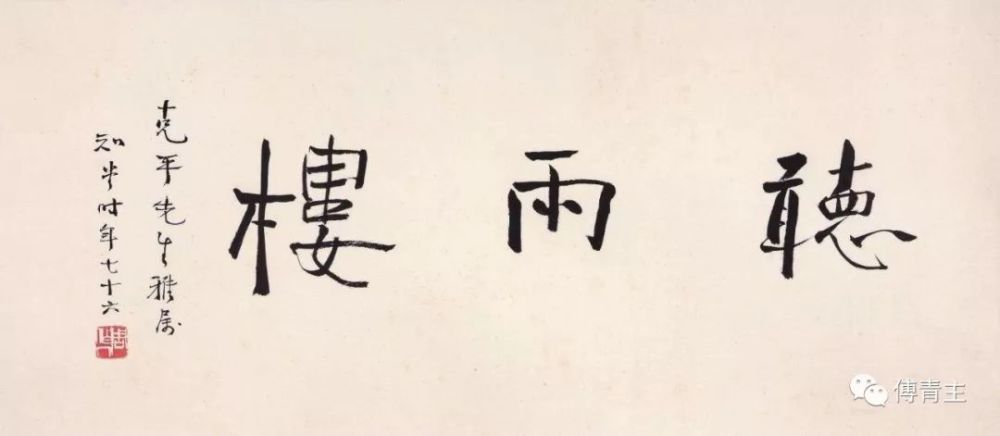 聽雨樓
克平先生雅属
知堂时年七十六
傅青主